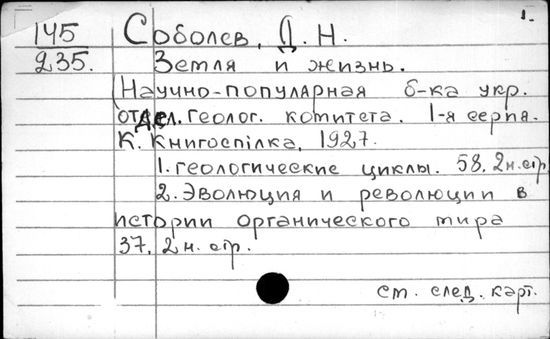 1.
145 Соболев, Д. Н.
235. Земля и жизнь.
(Научно-популярная б-ка укр.
отдел. геолог. комитета. 1-я серия.
К. Книгоспілка, 1927.
1. геологические циклы. 58, 2 н. стр.
2. Эволюция и революции в
истории органического мира
37, 2 н. стр.
см. след. карт.